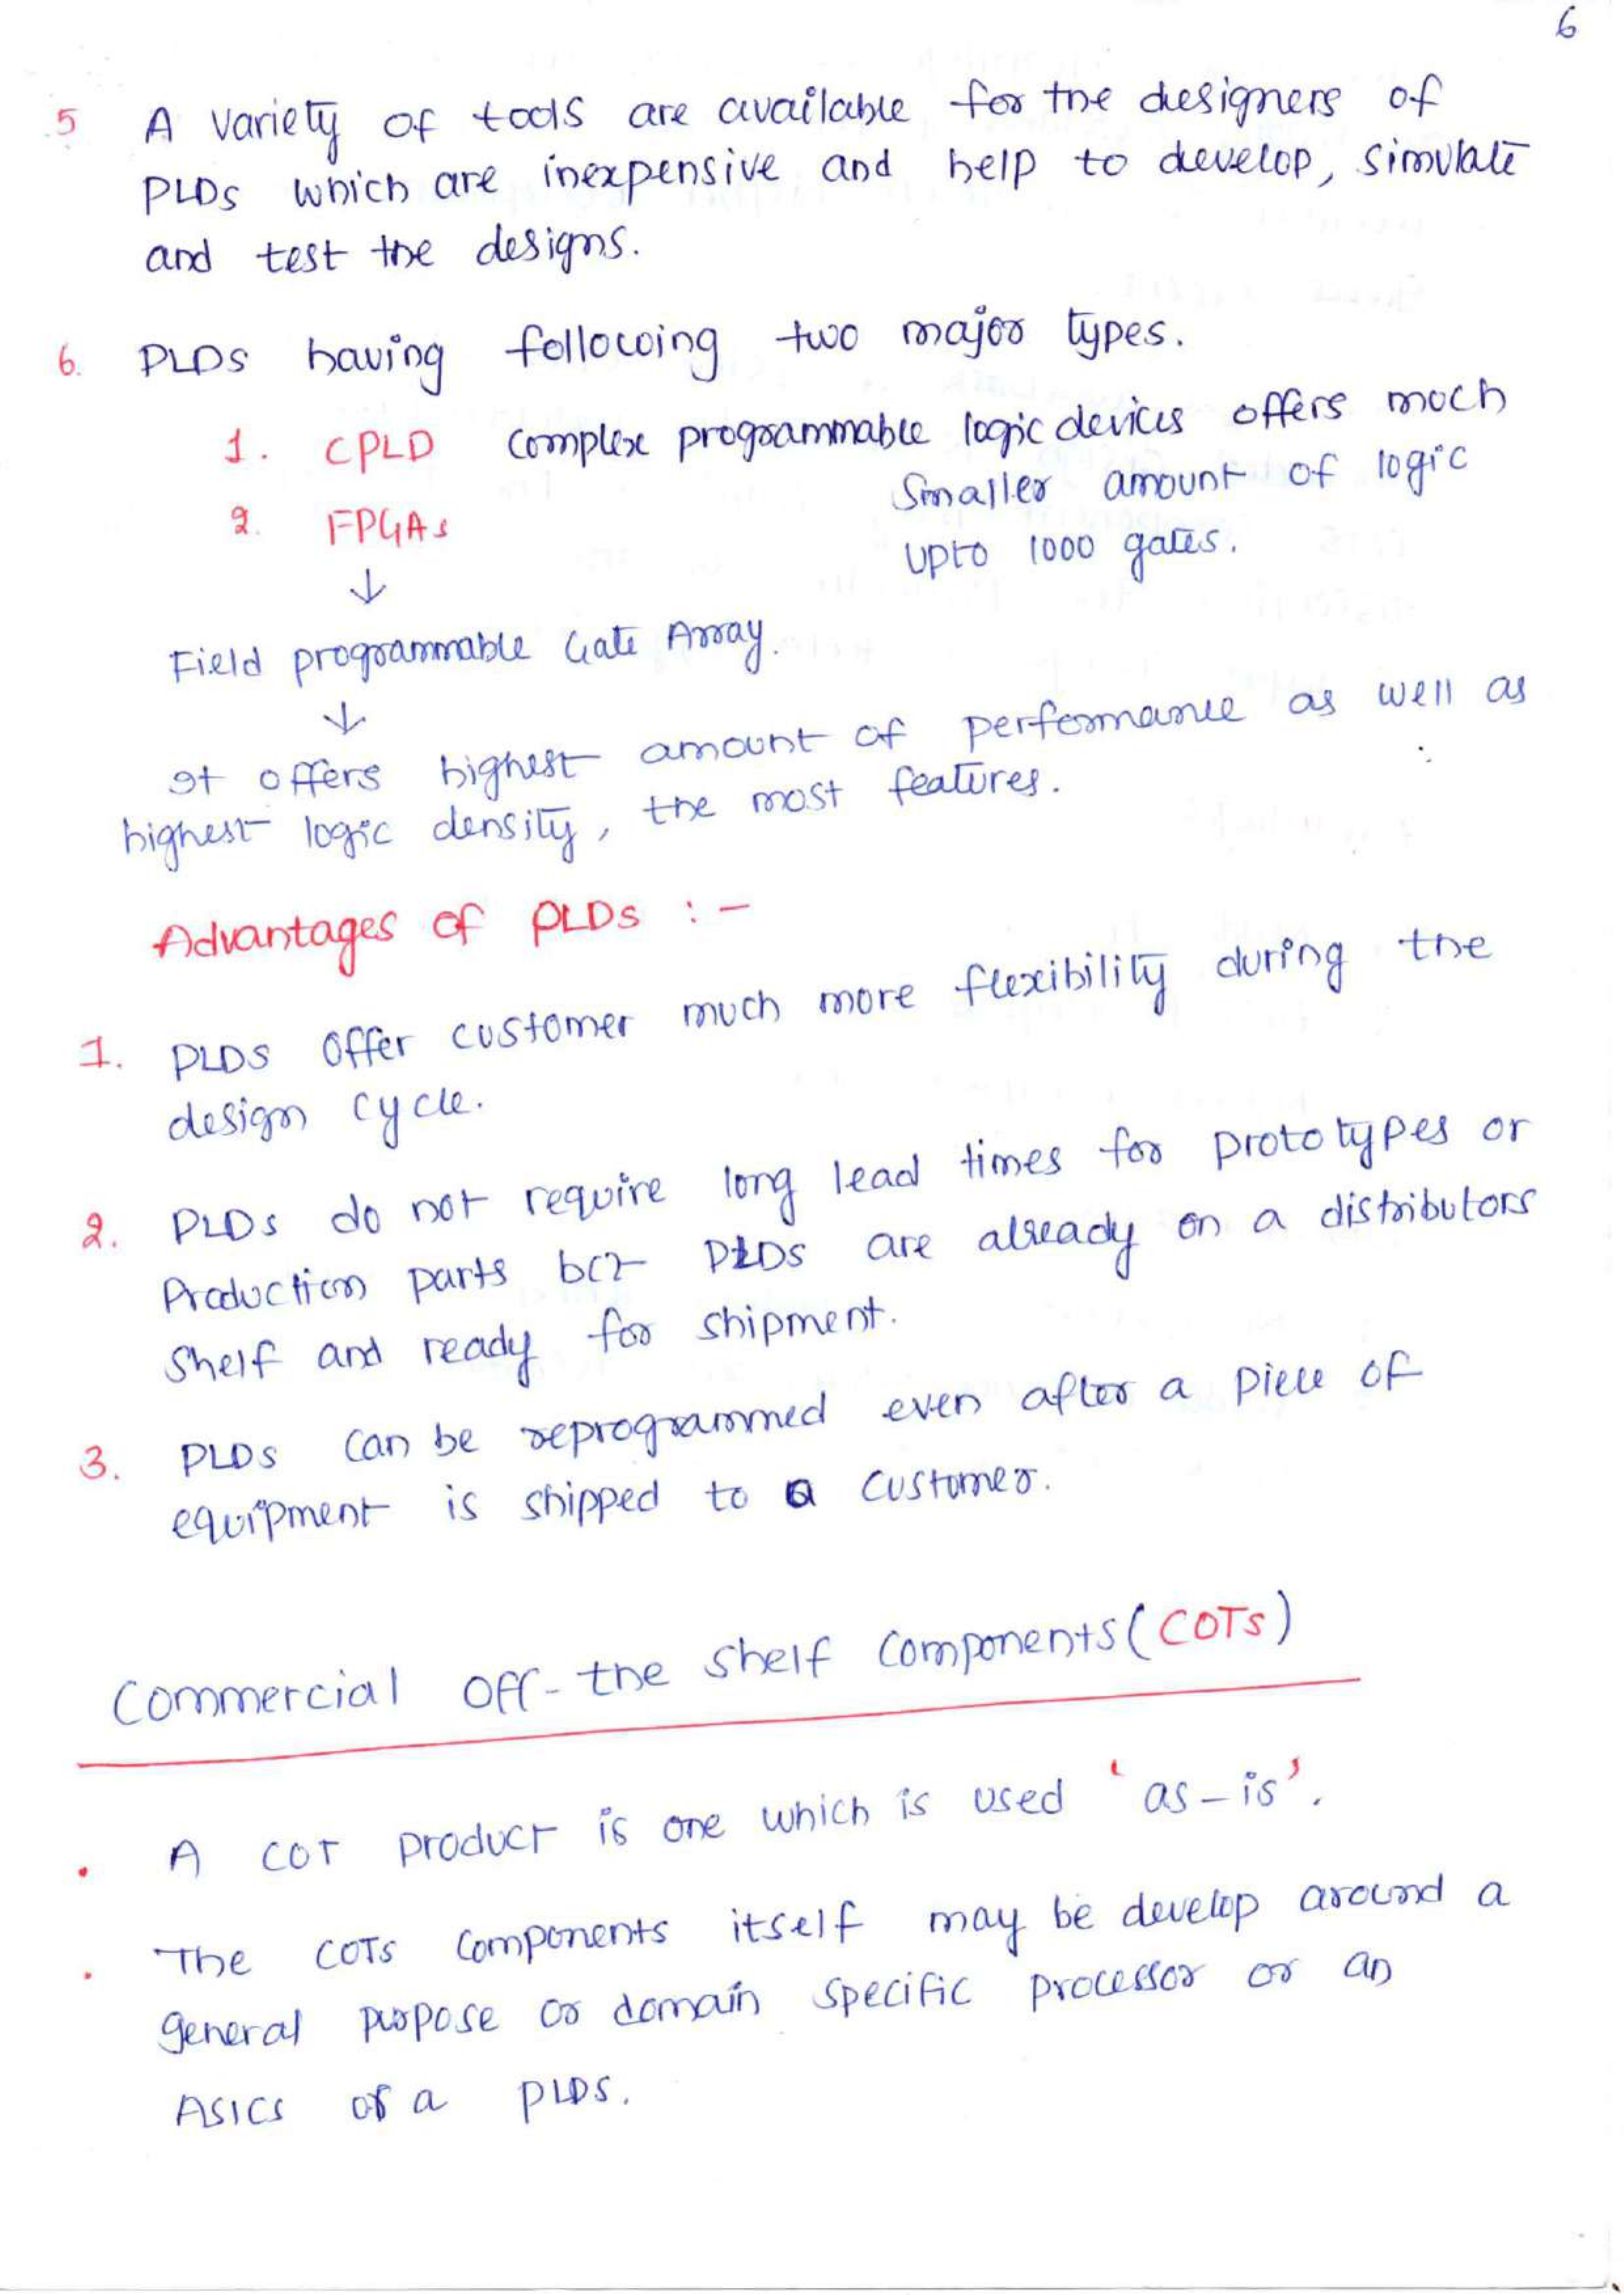 6
5 A variety of tools are available for the designers of
PLDs which are inexpensive and help to develop, simulate
and test the designs.
6. PLDs having following two major types.
1. CPLD Complex programmable logic devices offers much
Smaller amount of logic
2. FPGAs
upto 1000 gates.
↓
Field programmable Gate Array.
↓
It offers highest amount of performance as well as
highest logic density, the most features.
Advantages of PLDs :-
1. PLDs offer customer much more flexibility during the
design cycle.
2. PLDs do not require long lead times for prototypes or
Production parts bcz PLDs are already on a distributors
Shelf and ready for shipment.
3. PLDs can be reprogrammed even after a piece of
equipment is shipped to a customer.
Commercial off-the shelf Components (COTs)
• A COT product is one which is used 'as-is'.
• The COTs Components itself may be develop around a
general purpose or domain specific processor or an
ASICs of a PLDs.